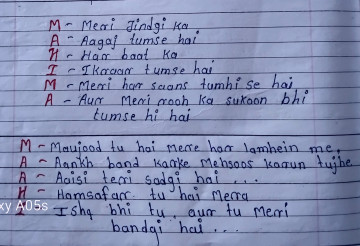 M - Meri Jindgi Ka
A - Aagaj tumse hai
H - Har baat Ka
I - Ikraar tumse hai
M - Meri har saans tumhi se hai
A - Aur Meri rooh Ka sukoon bhi
tumse hi hai
M - Maujood tu hai Mere har lamhein me,
A - Aankh band karke Mehsoos Karun tujhe
A - Aisi teri sadgi hai ...
H - Hamsafar tu hai Mera
I - Ishq bhi tu, aur tu Meri
bandgi hai ...
xy A05s